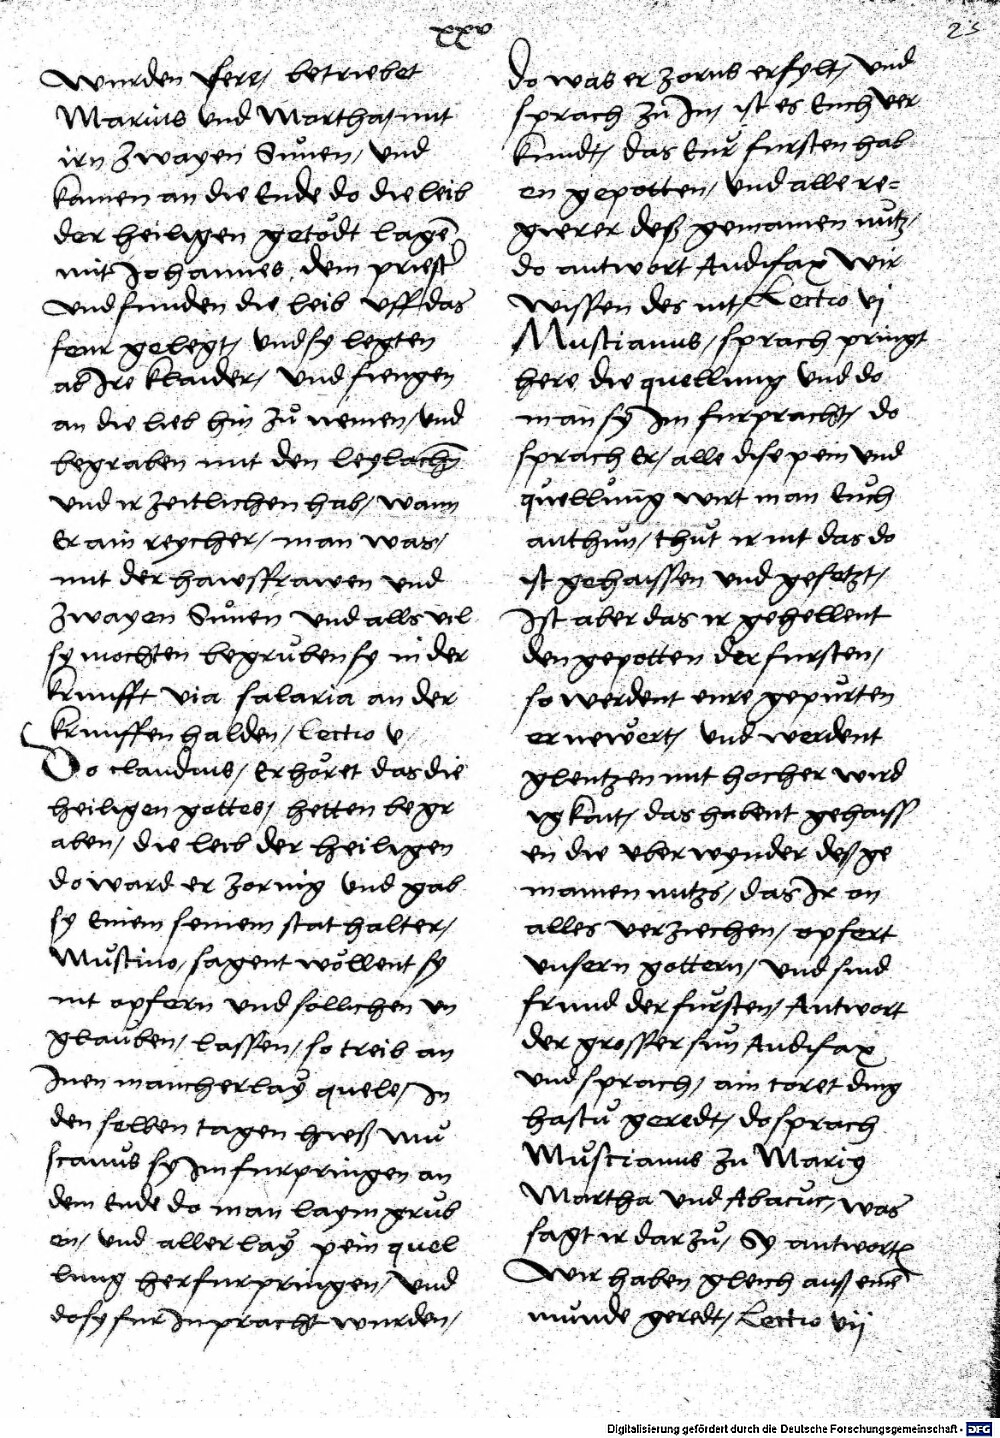 xxv
25
wurden sere / betriebet
Marius und Martha / mit
irn zwayen Sünen / und
kamen an die Ende do die leib
der heiligen getödt lagen
mit Johannes dem priester
und funden die leib uff das
feur gelegt / und sy legten
ab Ire klaider / und fiengen
an die leib hin zů nemen / und
begraben mit den leylachen
und ir zeitlichen hab / wann
Er ain reycher / man was /
mit der hawsfrawen und
zwayen Sünen und alls vil
sy mochten begrůben sy in der
krufft via salaria an der
kruffen halden / Lectio v
Do claudius / Erhöret das die
heiligen gottes / hetten begr
aben / die leib der heiligen
do ward er zornig und gab
sy Einem seinem stathalter /
Můstino / sagent wöllent sy
nit opfern und sollichen un
glauben / lassen / so treib an
Inen mancherlaÿ quele / In
den selben tagen hieß Mů
scanůs sy Im furpringen an
dem Ende do man laym grůb
en / und allerlaÿ pein quel
lung herfurpringen / und
do sy fur In pracht wurden /
do was er zorns erfylt / und
sprach zů In / ist es Euch ver
kundt / das Eůr fursten hab
en gepotten / und alle re=
gierer deß gemainen nůtz /
do antwort Audifax wir
wissen des nit / Lectio vj
Mustianus / sprach pringt
here die quellung und do
man sy Im furpracht / do
sprach Er / alle dise pein und
quellůng wirt man Euch
anthůn / thůt ir nit das do
ist gehaissen und gesetzt /
Ist aber das ir gehellent
den gepotten der fursten /
so werdent eure gepůrten
ernewert / und werdent
glentzen mit hocher wird
igkait / das habent gehaiss
en die uberwynder deß ge
mainen nutzs / das Ir on
alles verziechen / opfert
unsern gottern / und sind
frund der fürsten / Antwort
der grosser sun Audifax
und sprach / ain toret ding
hastů geredt / do sprach
Můscianus zu Mario
Martha und Abacůc / was
sagt ir darzů / Sy antworten
wir haben gleich auß einem
munde geredt / Lectio vij
Digitalisierung gefördert durch die Deutsche Forschungsgemeinschaft - DFG